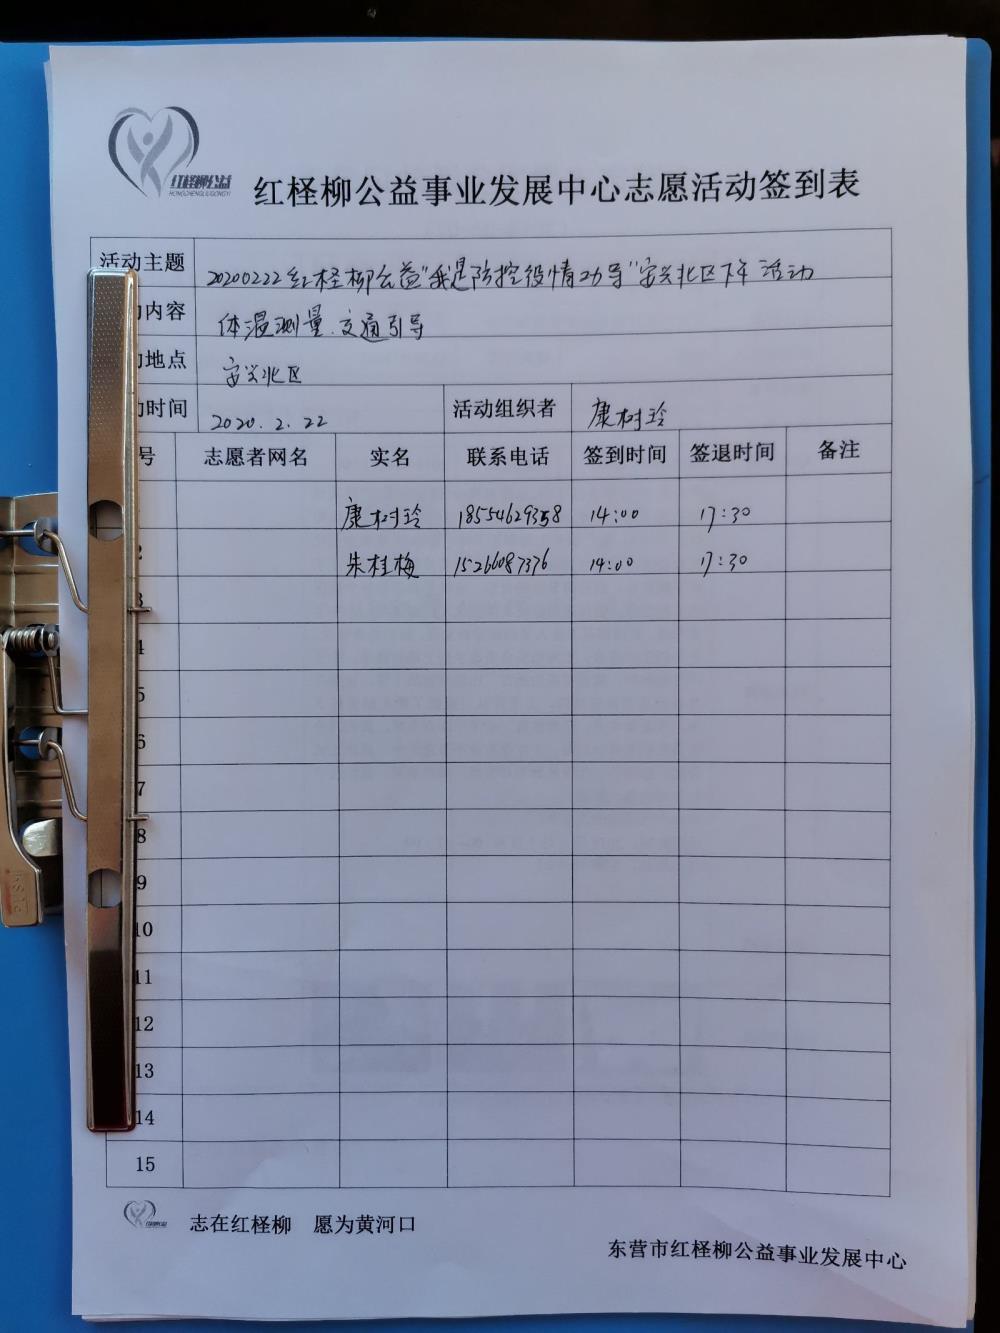 红柽柳公益
HONGCHENGLIUGONGYI
红柽柳公益事业发展中心志愿活动签到表
活动主题 20200222红柽柳公益"我是防控疫情劝导"安兴北区下午活动
内容 体温测量、交通引导
地点 安兴北区
时间 2020.2.22 活动组织者 康树玲
号 志愿者网名 实名 联系电话 签到时间 签退时间 备注
康树玲 18554629358 14:00 17:30
2 朱桂梅 15266087376 14:00 17:30
3
4
5
6
7
8
9
10
11
12
13
14
15
志在红柽柳 愿为黄河口
东营市红柽柳公益事业发展中心